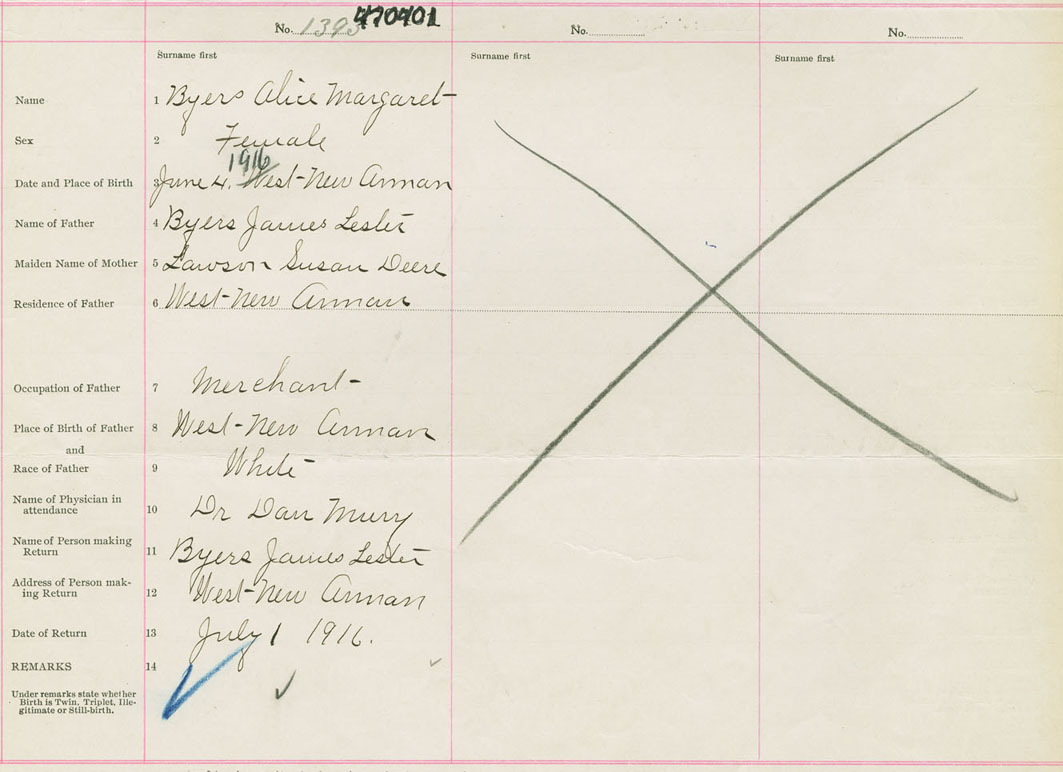 No. 1393 470401 No. No.
Surname first Surname first Surname first
Name 1 Byers Alice Margaret
Sex 2 Female
1916
Date and Place of Birth 3 June 4. West-New Annan
Name of Father 4 Byers James Lester
Maiden Name of Mother 5 Lawson Susan Deere
Residence of Father 6 West-New Annan
Occupation of Father 7 Merchant
Place of Birth of Father 8 West-New Annan
and
Race of Father 9 White
Name of Physician in
attendance 10 Dr Dan
Name of Person making
Return 11 Byers James Lester
Address of Person mak-
ing Return 12 West-New Annan
Date of Return 13 July 1 1916.
REMARKS 14
Under remarks state whether
Birth is Twin, Triplet, Ille-
gitimate or Still-birth.